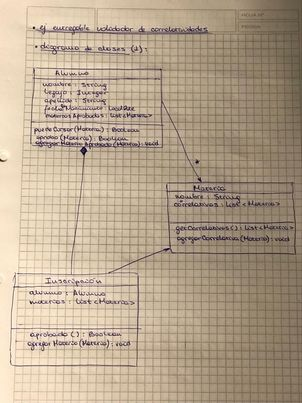 • ej entregable validador de correlatividades
• diagrama de clases (1):
Alumno
nombre : String
legajo : Integer
apellido : String
fechaNacimiento : LocalDate
materiasAprobadas : List <Materia>
puedeCursar (Materia) : Boolean
aprobo (Materia) : Boolean
agregarMateriaAprobada (Materia) : void
*
Materia
nombre : String
correlativas : List <Materia>
getCorrelativas () : List <Materia>
agregarCorrelativa (Materia) : void
Inscripción
alumno : Alumno
materias : List <Materia>
aprobada () : Boolean
agregar Materia (Materia) : void